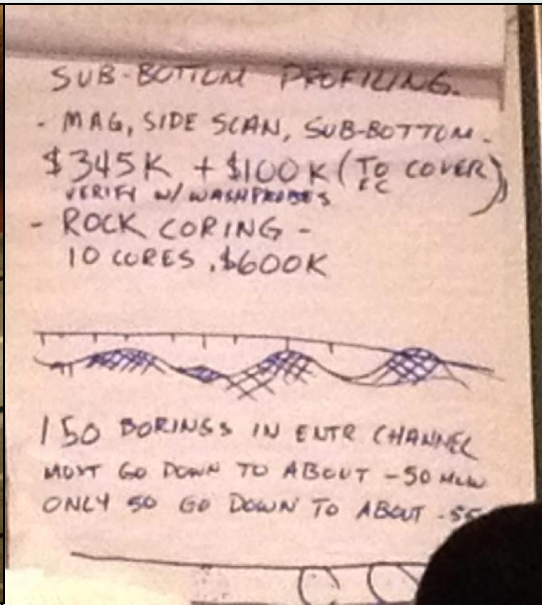 SUB-BOTTOM PROFILING.
- MAG, SIDE SCAN, SUB-BOTTOM.
$345K + $100K (TO COVER)
EC
VERIFY W/ WASHPROBES
- ROCK CORING -
10 CORES, $600K
150 BORINGS IN ENTR CHANNEL
MOST GO DOWN TO ABOUT -50 MLW
ONLY 50 GO DOWN TO ABOUT -55